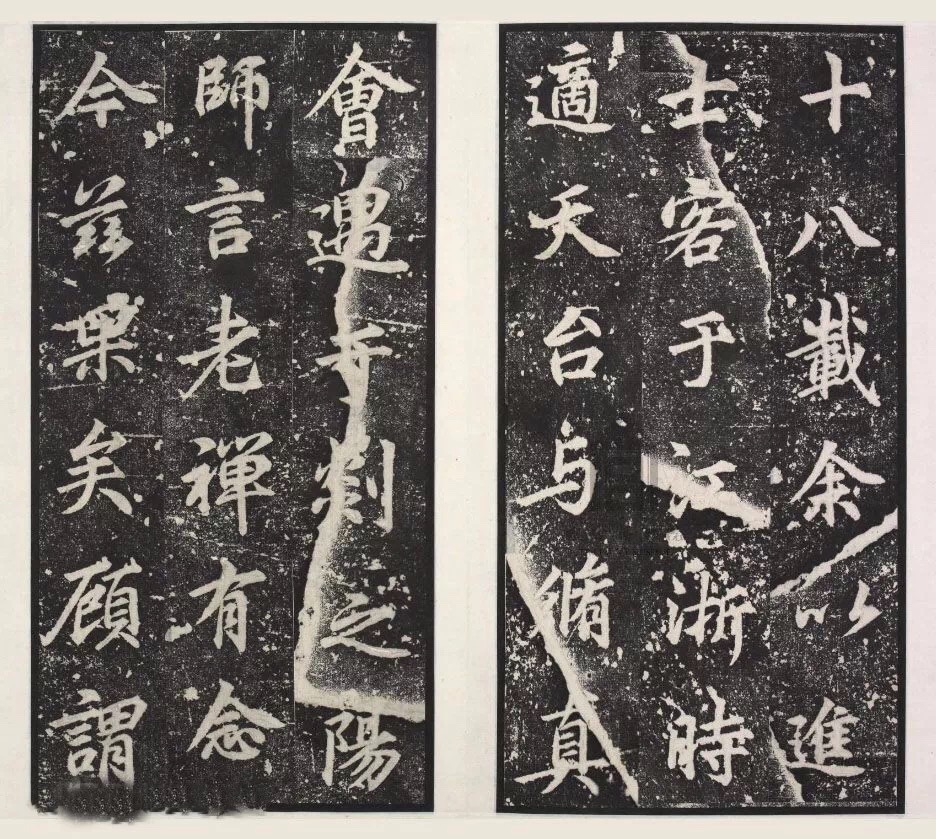 十八載余以進
士客于江浙時
適天台与脩真
會遇寺剡之陽
師言老禪有念
今兹果矣顧謂